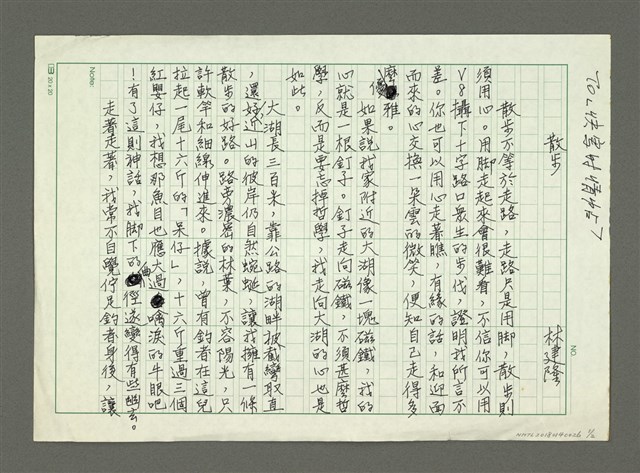 散步
林建隆
散步不等於走路，走路只是用脚，散步則
須用心。用脚走起來會很難看，不信你可以用
V8攝下十字路口衆生的步伐，證明我所言不
差。你也可以用心走著瞧，有緣的話，和迎面
而來的心交換一朵雲的微笑，便知自己走得多
麼優雅。
如果說我家附近的大湖像一塊磁鐵，我的
心就是一根釘子。釘子走向磁鐵，不須甚麼哲
學，反而是要忘掉哲學，我走向大湖的心也是
如此。
大湖長三百米，靠公路的湖畔被截彎取直
，還好近山的彼岸仍自然蜿蜒，讓我擁有一條
散步的好路。路旁濃密的林葉，不容陽光，只
許軟竿和細線伸進來。據說，曾有釣者在這兒
拉起一尾十六斤的「呆仔」，十六斤重過三個
紅嬰仔，我想那魚目也應大過噙淚的牛眼吧
！有了這則神話，我脚下的曲徑遂變得有些幽玄。
走著走著，我常不自覺佇足釣者身後，讓
NO.
Note:
20 x 20